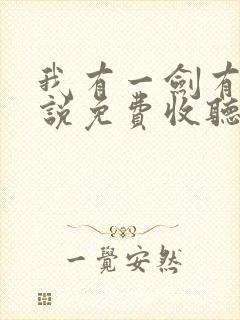 我有一劍有
說免費收聽
一覺安然